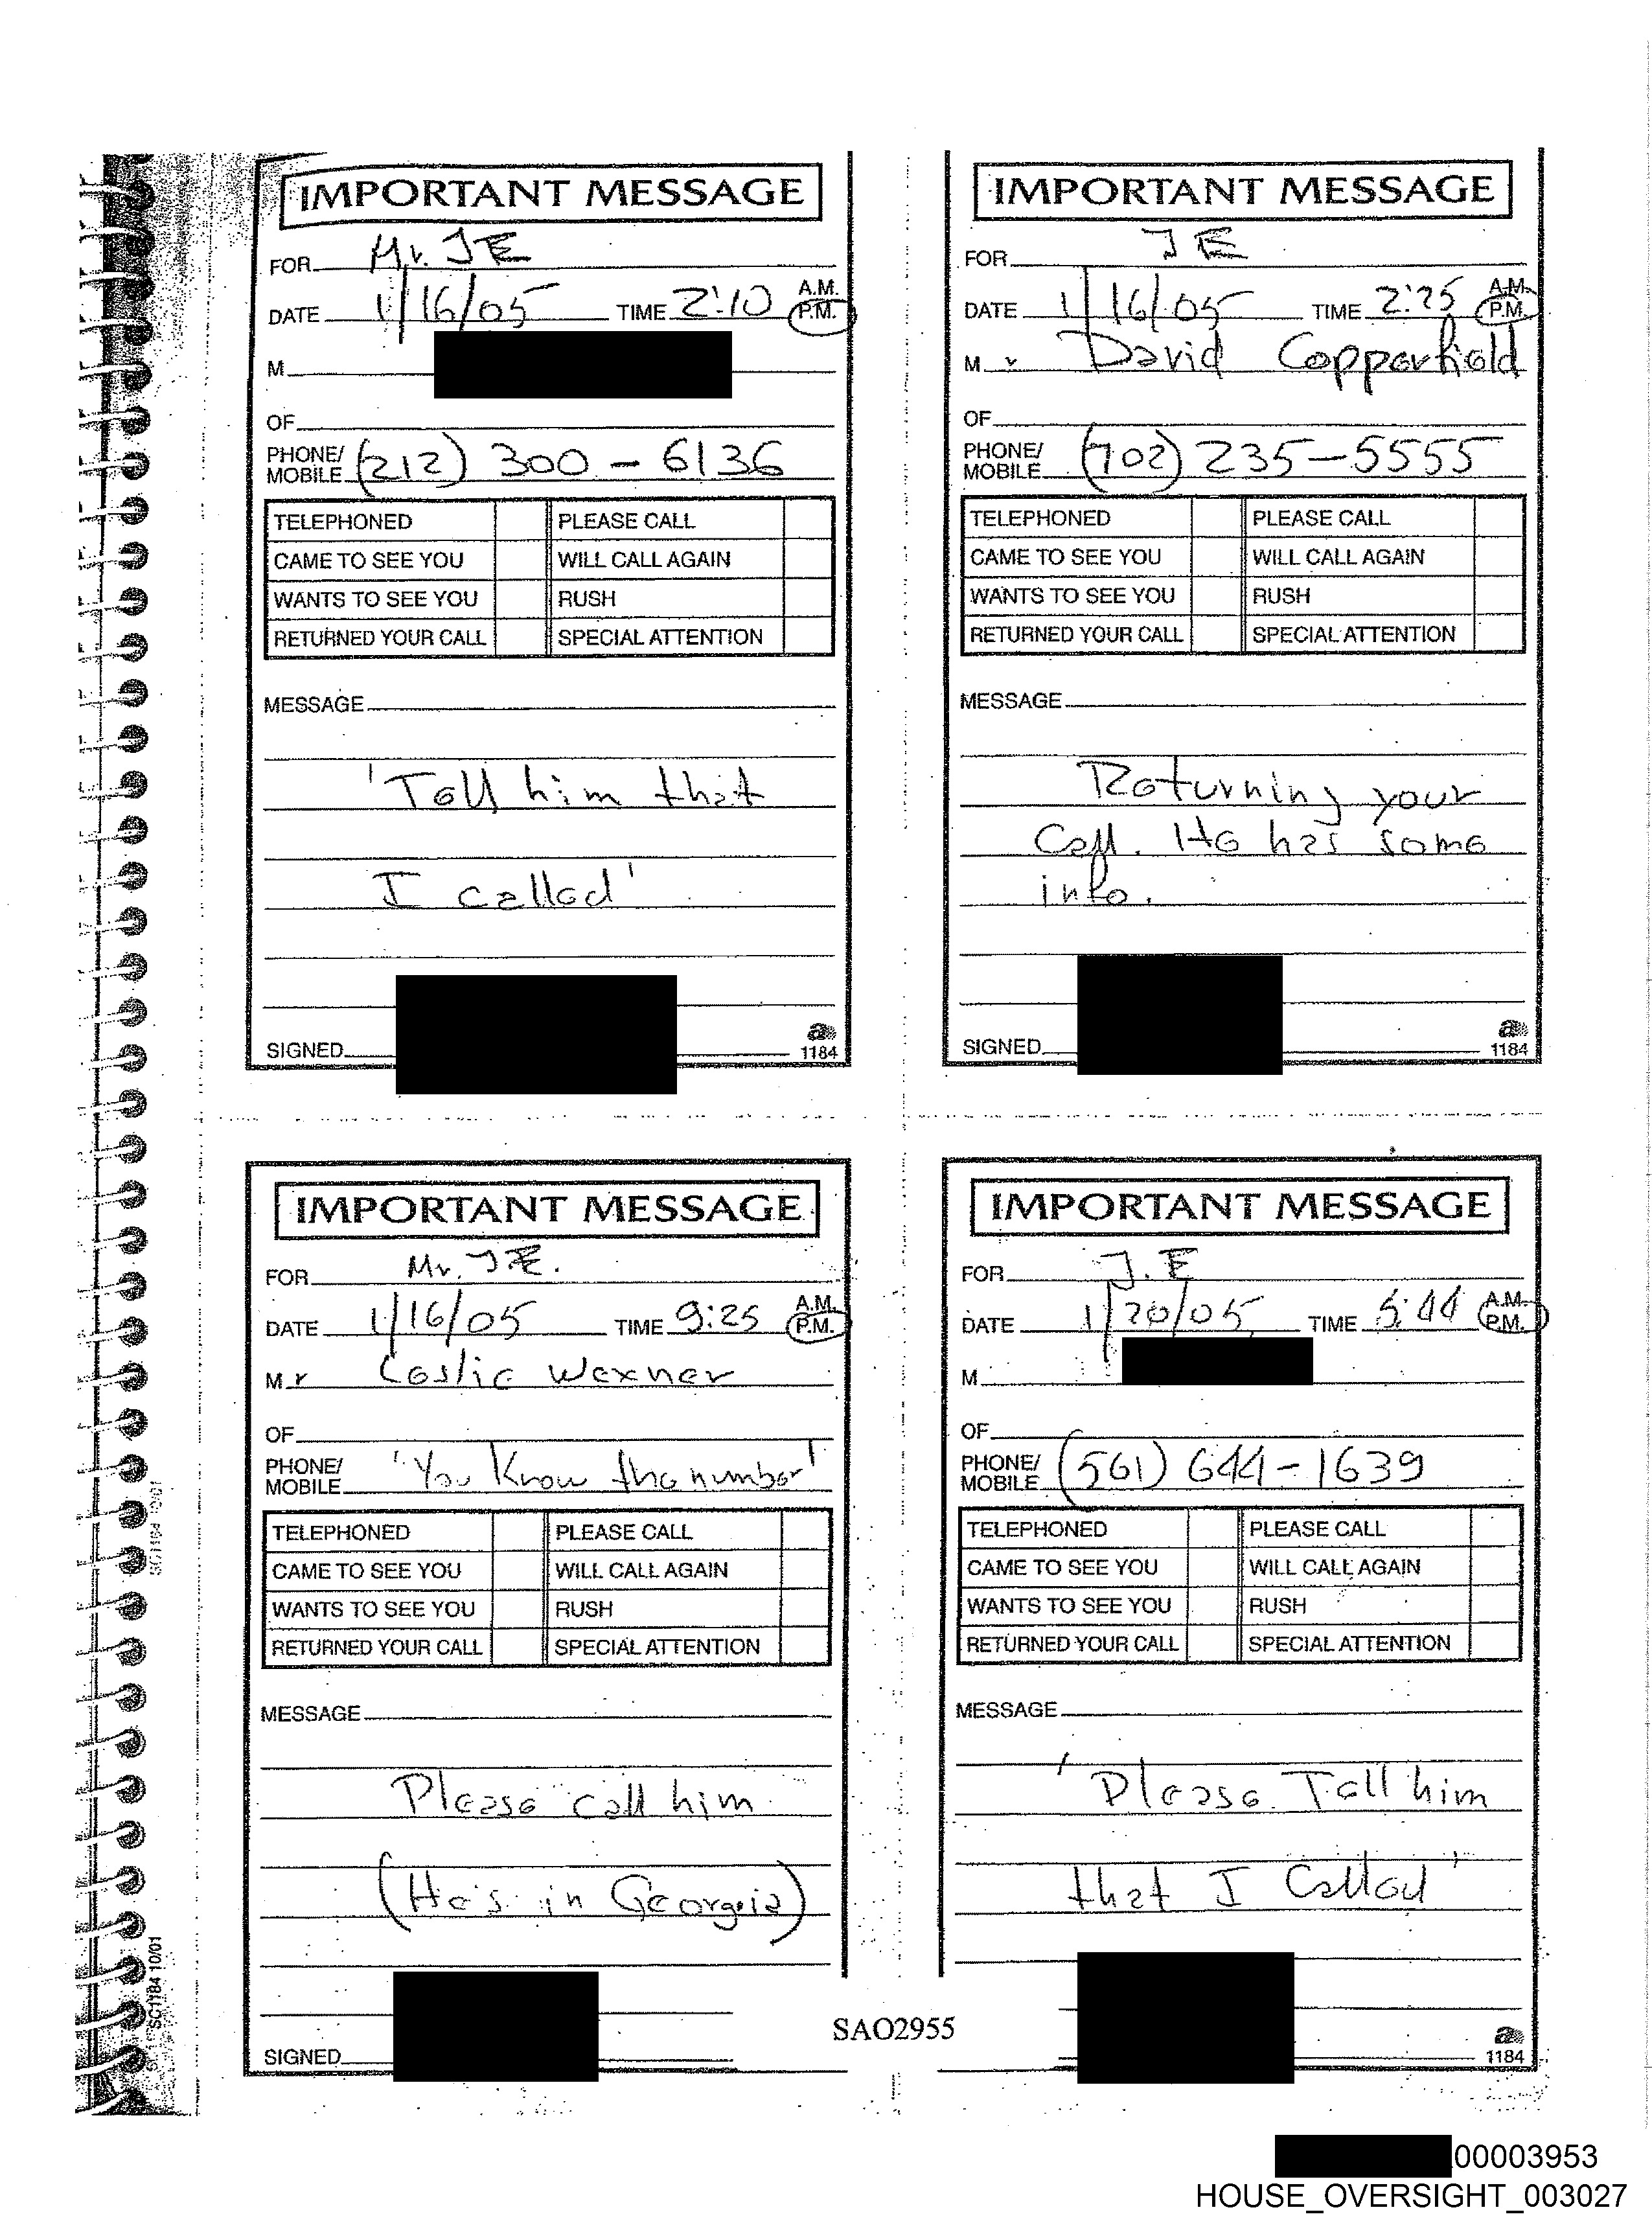 IMPORTANT MESSAGE
FOR Mr. JE
DATE 1/16/05 TIME 2:10 A.M. P.M.
M
OF
PHONE/
MOBILE (212) 300-6136
TELEPHONED PLEASE CALL
CAME TO SEE YOU WILL CALL AGAIN
WANTS TO SEE YOU RUSH
RETURNED YOUR CALL SPECIAL ATTENTION
MESSAGE
'Tell him that
I called'
SIGNED
1184
IMPORTANT MESSAGE
FOR JE
DATE 1/16/05 TIME 2:25 A.M. P.M.
Mr David Copperfield
OF
PHONE/
MOBILE (702) 235-5555
TELEPHONED PLEASE CALL
CAME TO SEE YOU WILL CALL AGAIN
WANTS TO SEE YOU RUSH
RETURNED YOUR CALL SPECIAL ATTENTION
MESSAGE
Returning your
Call. He has some
info.
SIGNED
1184
IMPORTANT MESSAGE
FOR Mr. J.E.
DATE 1/16/05 TIME 9:25 A.M. P.M.
Mr Leslie Wexner
OF
PHONE/
MOBILE 'You Know the number'
TELEPHONED PLEASE CALL
CAME TO SEE YOU WILL CALL AGAIN
WANTS TO SEE YOU RUSH
RETURNED YOUR CALL SPECIAL ATTENTION
MESSAGE
Please call him
(He's in Georgeia)
SIGNED
IMPORTANT MESSAGE
FOR J.E
DATE 1/20/05 TIME 5:44 A.M. P.M.
M
OF
PHONE/
MOBILE (561) 644-1639
TELEPHONED PLEASE CALL
CAME TO SEE YOU WILL CALL AGAIN
WANTS TO SEE YOU RUSH
RETURNED YOUR CALL SPECIAL ATTENTION
MESSAGE
'Please Tell him
that I Called'
1184
SC1184 10/01
SAO2955
00003953
HOUSE_OVERSIGHT_003027